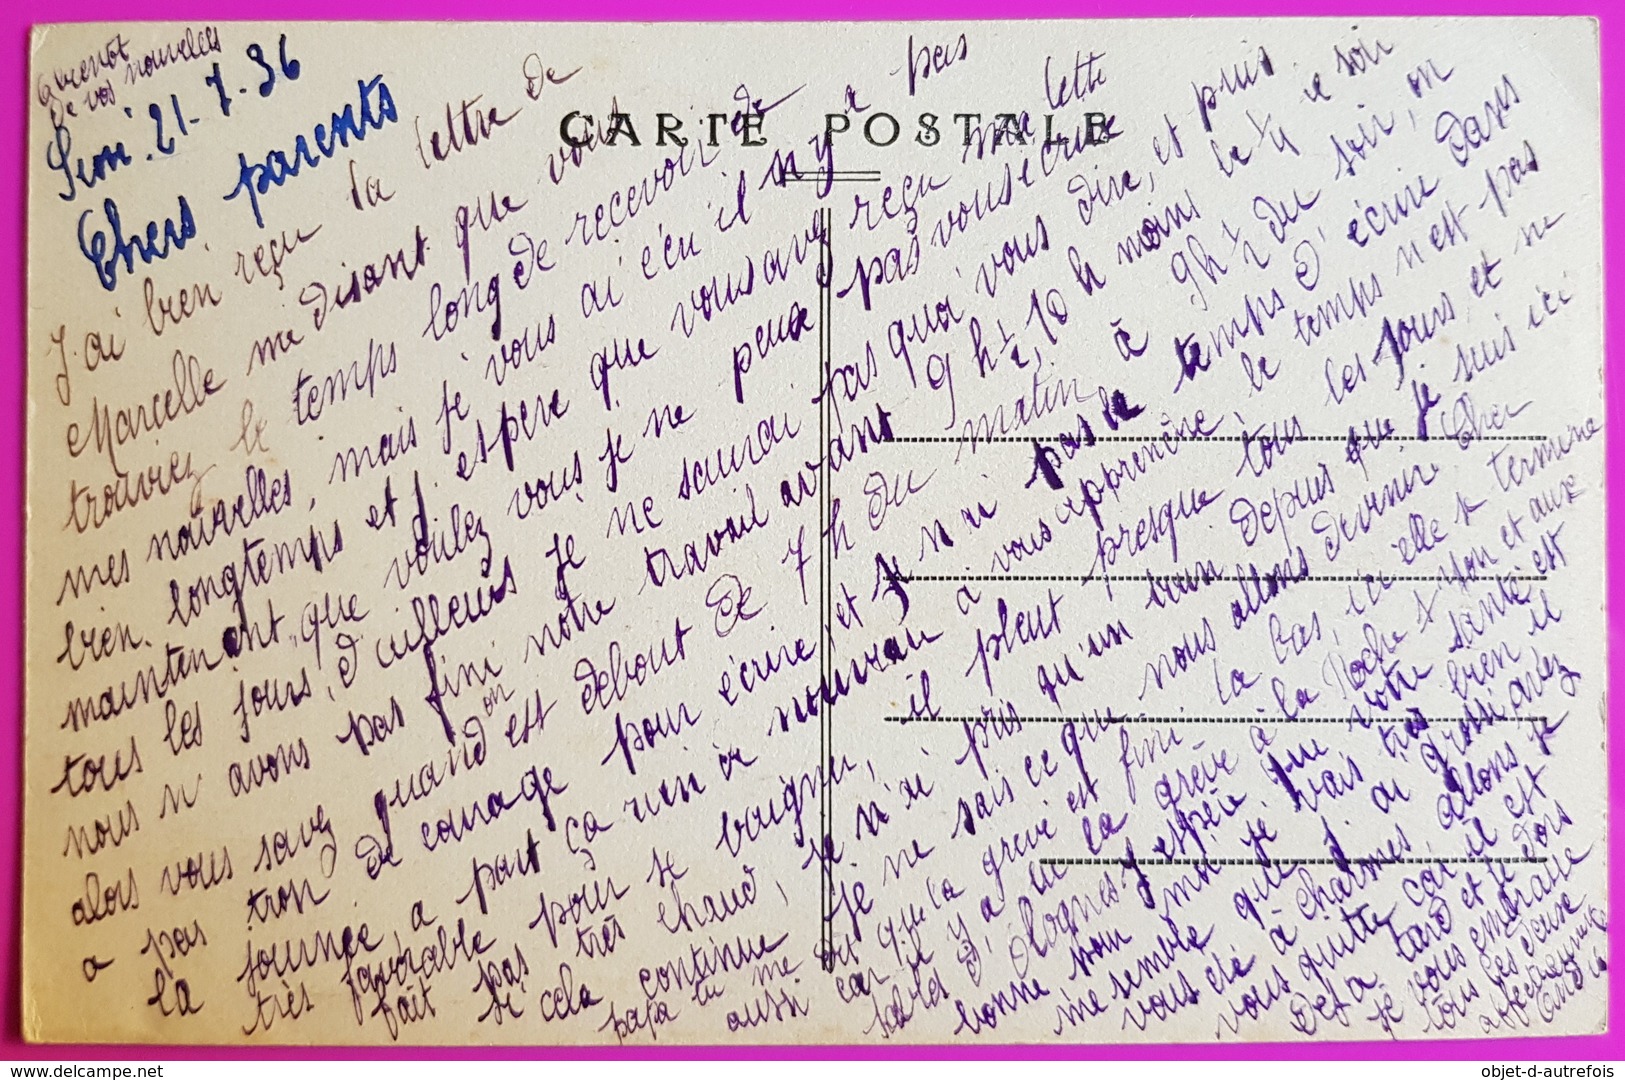 à bientôt
de vos nouvelles
21-7-36
Chers parents
CARTE POSTALE
J'ai bien reçu la lettre de
Marcelle me disant que vous
trouviez le temps long de recevoir de
mes nouvelles, mais je vous ai écri il n y a pas
bien longtemps et j espère que vous avez reçu ma lettre
maintenant que voulez vous je ne peux pas vous écrire
tous les jours, d'ailleurs je ne saurai pas quoi vous dire, et puis
nous n avons pas fini notre travail avant 9 h ½, 10 h moins le ¼ le soir
alors vous savez quand on est debout de 7 h du matin à 9h ½ du soir, on
a pas trop de courage pour écrire, et je n ai pas le temps d'écrire dans
la journée, a part ça rien de nouveau à vous apprendre, le temps n est pas
très favorable pour se baigner, il pleut presque tous les jours et ne
fait pas très chaud, je n'ai pris qu'un bain depuis que je suis ici
si cela continue je ne sais ce que nous allons devenir Cher
papa tu me dis que la grève est fini la bas, ici elle se termine
aussi car il y a eu la grève à la Roche s Yon et aux
sables d'Olonnes. J espère que votre santé est
bonne moi je vais très bien il
me semble que j ai grossi avez
vous été à Charmes allons je
vous quitte car il est
déjà tard et je dois
je vous embrasse
tous les deux
affectueusement